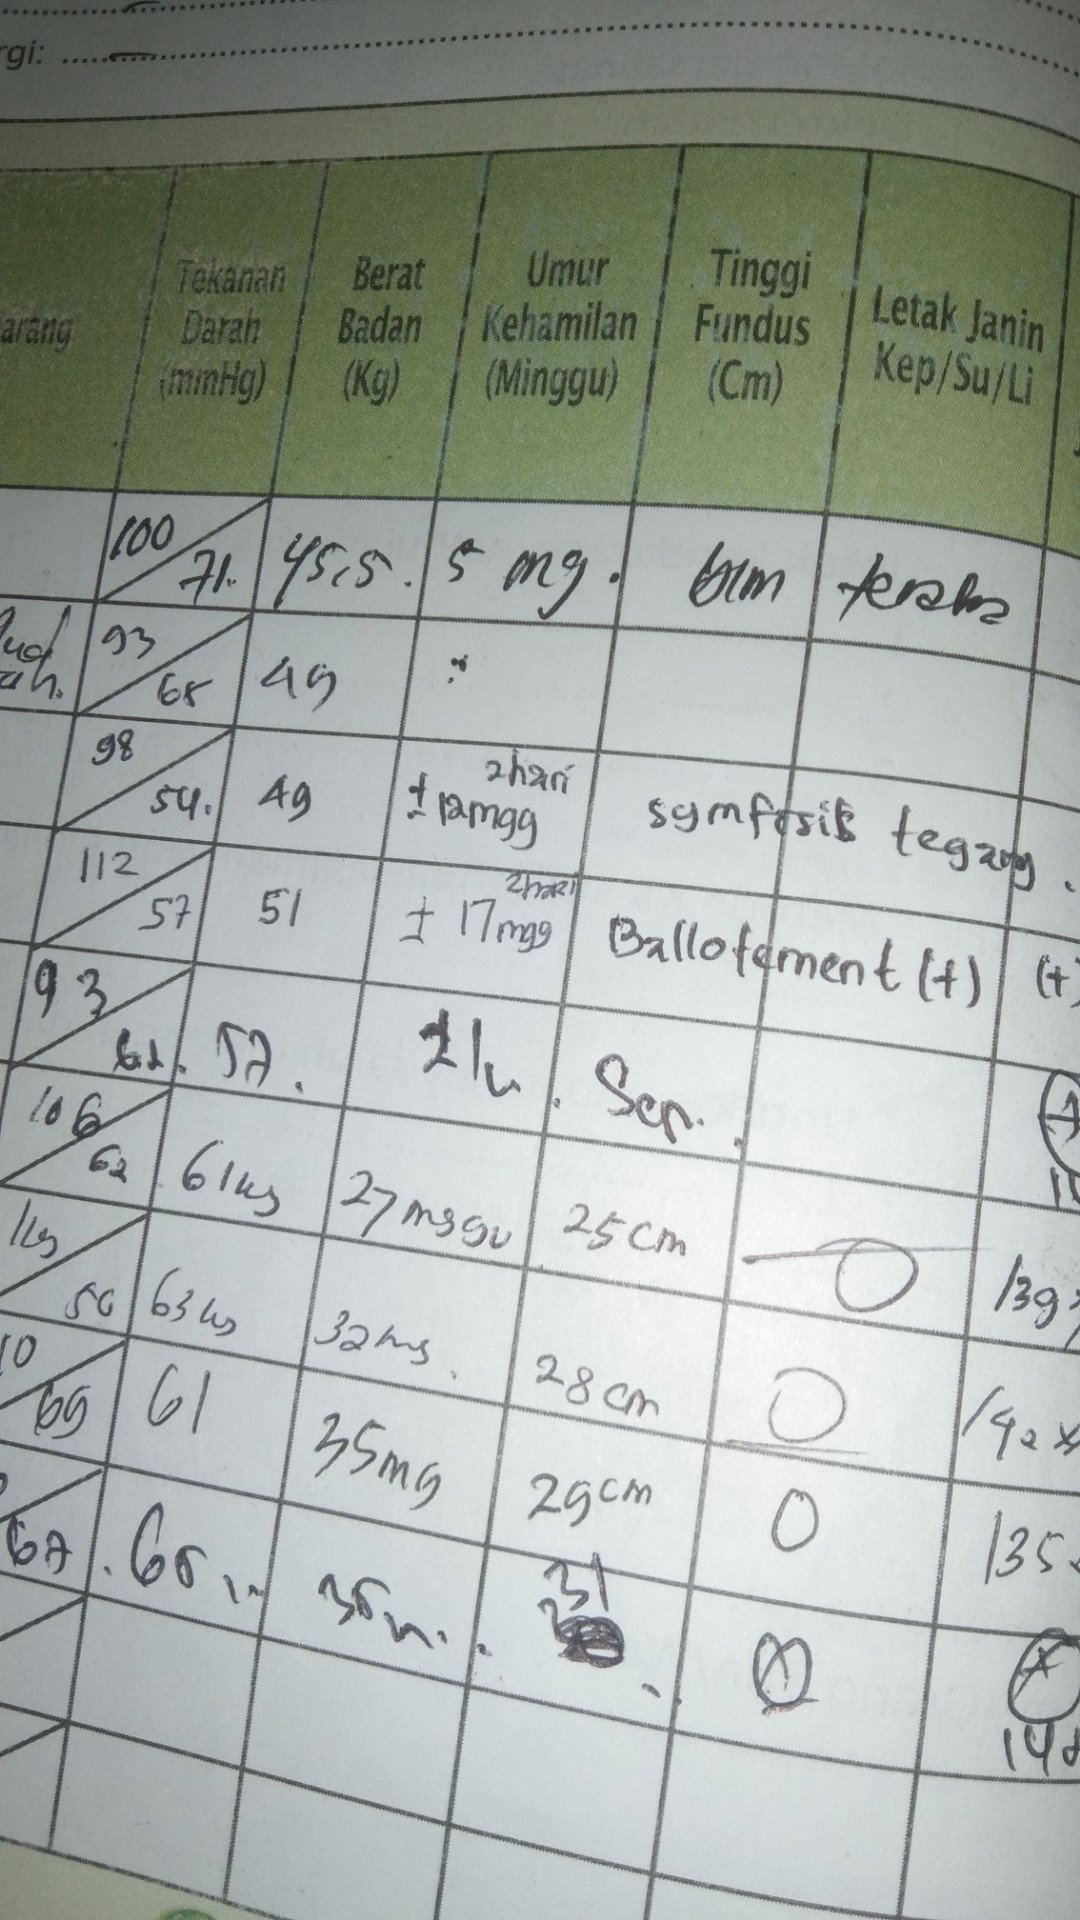 rgi:
arang
Tekanan Darah (mmHg)
Berat Badan (Kg)
Umur Kehamilan (Minggu)
Tinggi Fundus (Cm)
Letak Janin Kep/Su/Li
100 71. 45,5. 5 mg. blm teraba
93 65 49
98 54. 49 ± 12mgg 2hari symfisis tegang.
112 57 51 ± 17mgg 2hari Ballotement (+) (+)
93 62. 57. Sep.
106 62 61kg 27 mggu 25 cm 139
56 63kg 32mg. 28 cm 142 x
10 69 61 35mg 29cm 135
67. 31